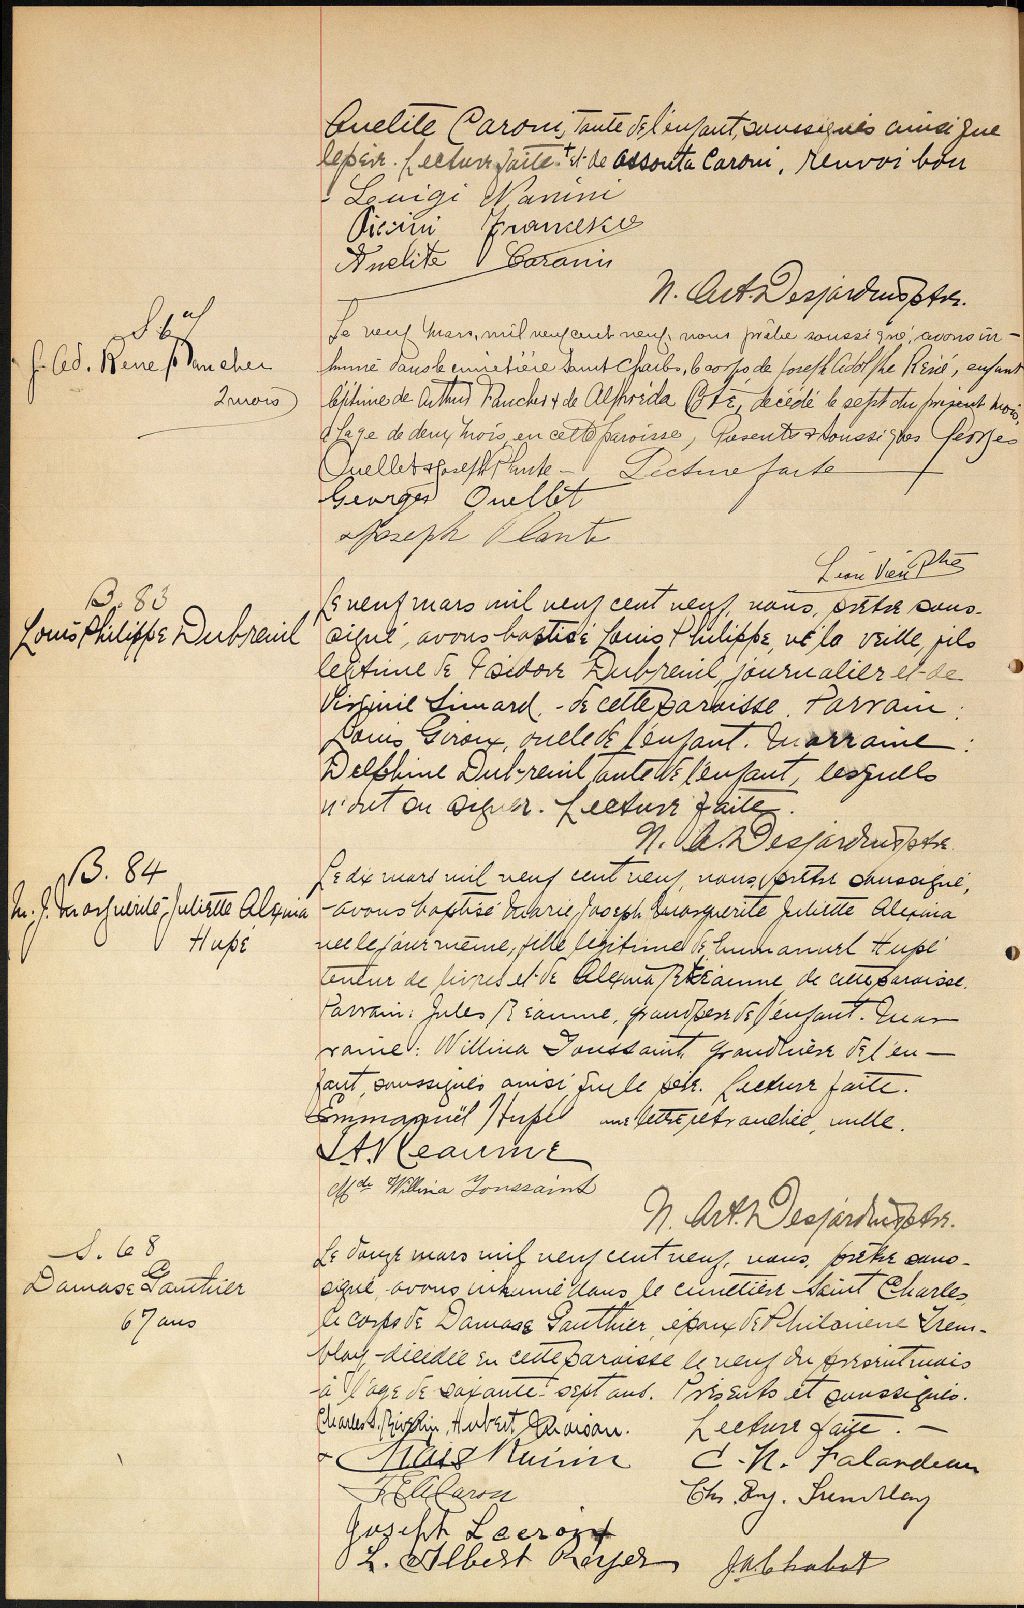 Anelite Caroni, tante de l'enfant, soussignés ainsi que
le père. Lecture faite. + et de Assonta Caroni, renvoi bon
Louigi Nanini
Piccini Francesco
Anelite Caroni
N. Art. Desjardins ptre.
J. Ad. René Plancher
2 mois
Le neuf Mars, mil neuf cent neuf, nous prêtre soussigné, avons in-
humé dans le cimetière Saint Charles, le corps de Joseph Adolphe René, enfant
légitime de Arthur Plancher & de Alphréda Coté, décédé le sept du présent mois,
à l'age de deux mois, en cette paroisse, Présents & soussignés Georges
Ouellet & Joseph Plante - Lecture faite
Georges Ouellet
Joseph Plante
Léon Vien Ptre
B. 83
Louis Philippe Dubreuil
Le neuf mars mil neuf cent neuf, nous, prêtre sous-
signé, avons baptisé Louis Philippe, né la veille, fils
légitime de Isidore Dubreuil, journalier et de
Virginie Simard. - de cette paroisse. Parrain :
Louis Giroux, oncle de l'enfant. Marraine :
Delphine Dubreuil, tante de l'enfant, lesquels
n'ont su signer. Lecture faite.
N. A. Desjardins ptre.
B. 84
M. J. Marguerite-Juliette Alexina
Hupé
Le dix mars mil neuf cent neuf, nous, prêtre soussigné,
avons baptisé Marie, Joseph Marguerite Juliette Alexina
née le jour même, fille légitime de Emmanuel Hupé
teneur de livres et de Alexina Réaume de cette paroisse.
Parrain : Jules Réaume, grand père de l'enfant. Mar
raine : Willina Toussaint, grand'mère de l'en-
fant, soussignés ainsi que le père. Lecture faite.
Emmanuël Hupé une lettre retranchée, nulle.
J. A. Reaume
Mde Willina Toussaint
N. Art. Desjardins ptre.
S. 68
Damase Gauthier
67 ans
Le douze mars mil neuf cent neuf, nous, prêtre sous-
signé, avons inhumé dans le cimetière Saint Charles,
le corps de Damase Gauthier, époux de Philomène Trem-
blay, décédée en cette paroisse le neuf du présent mois
à l'âge de soixante-sept ans. Présents et soussignés.
Charles Hubert Lecture faite. -
C. N. Falardeau
Caron Chs. Tremblay
Joseph Lacroix
L. Albert Royer J. A. Chabot